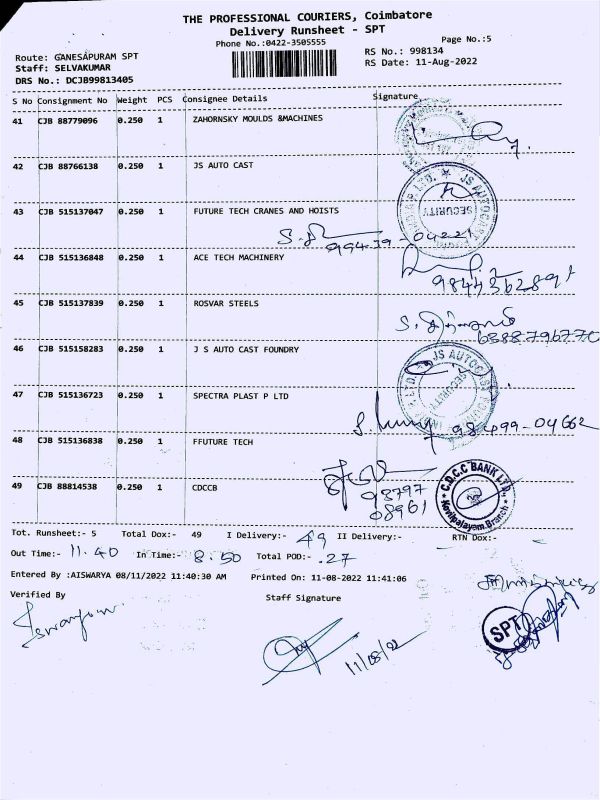 THE PROFESSIONAL COURIERS, Coimbatore
Delivery Runsheet - SPT
Phone No.:0422-3505555
Page No.:5
Route: GANESAPURAM SPT
RS No.: 998134
Staff: SELVAKUMAR
RS Date: 11-Aug-2022
DRS No.: DCJB99813405
S No Consignment No Weight PCS Consignee Details Signature
41 CJB 88779096 0.250 1 ZAHORNSKY MOULDS &MACHINES
42 CJB 88766138 0.250 1 JS AUTO CAST
JS AUTOCAST
SECURITY
43 CJB 515137047 0.250 1 FUTURE TECH CRANES AND HOISTS
99439-04221
44 CJB 515136848 0.250 1 ACE TECH MACHINERY
9844362891
45 CJB 515137839 0.250 1 ROSVAR STEELS
6388796770
46 CJB 515158283 0.250 1 J S AUTO CAST FOUNDRY
JS AUTOCAST
SECURITY
47 CJB 515136723 0.250 1 SPECTRA PLAST P LTD
98499-04662
48 CJB 515136838 0.250 1 FFUTURE TECH
49 CJB 88814538 0.250 1 CDCCB
93797
08961
C.D.C.C BANK LTD.
Kovilpalayam.Branch
Tot. Runsheet:- 5 Total Dox:- 49 I Delivery:- 49 II Delivery:- RTN Dox:-
Out Time:- 11.40 In Time:- 8.50 Total POD:- .27
Entered By :AISWARYA 08/11/2022 11:40:30 AM Printed On: 11-08-2022 11:41:06
Verified By Staff Signature
SPT
11/08/22